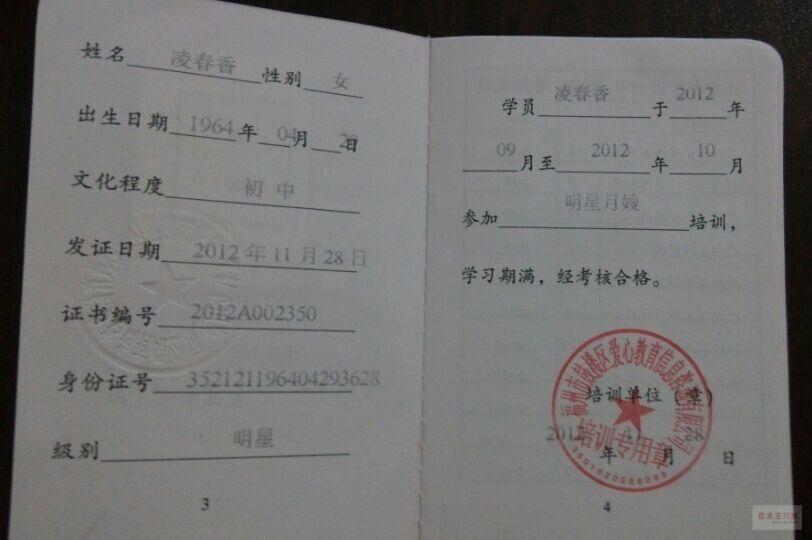 姓名 凌春香 性别 女
出生日期 1964 年 04 月 29 日
文化程度 初中
发证日期 2012 年 11 月 28 日
证书编号 2012A002350
身份证号 352121196404293628
级别 明星
3
学员 凌春香 于 2012 年
09 月至 2012 年 10 月
参加 明星月嫂 培训，
学习期满，经考核合格。
培训单位（章）
2012 11 28
年 月 日
福州市鼓楼区爱心教育信息咨询有限公司
培训专用章
4